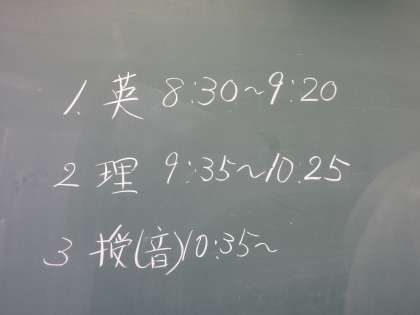 1. 英 8:30~9:20
2 理 9:35~10.25
3 授(音)10:35~